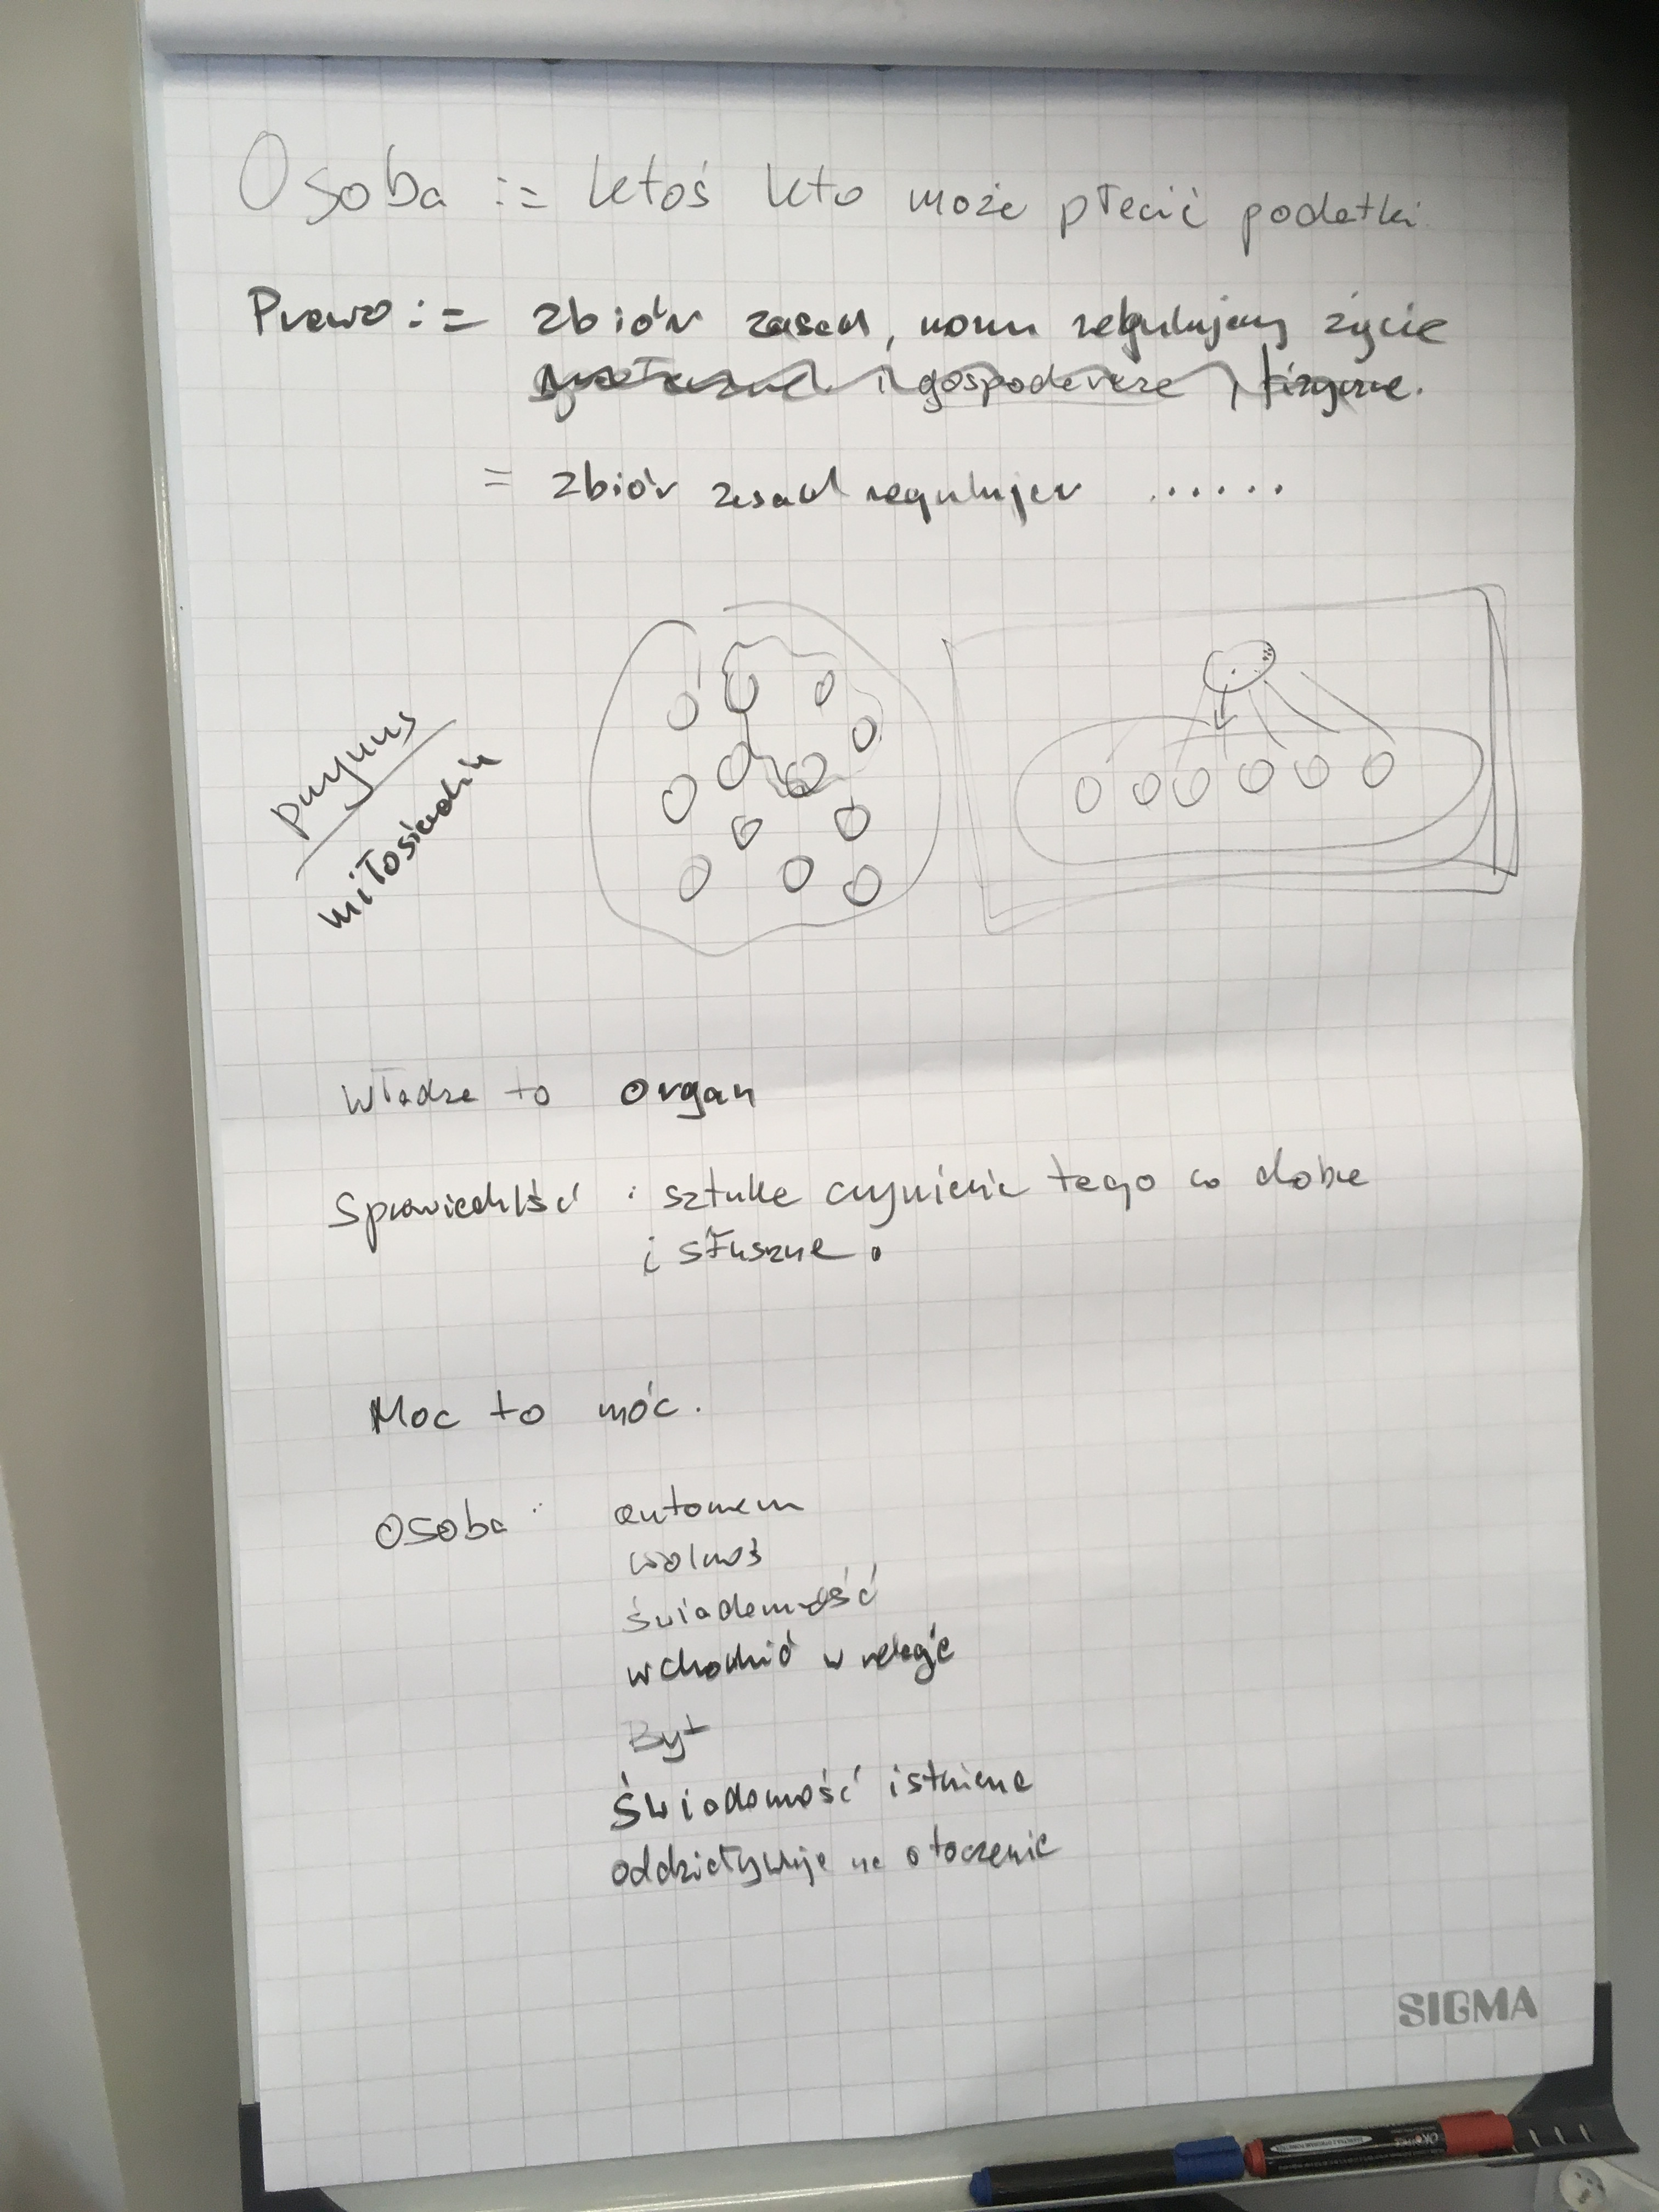 Osoba := ktoś kto może płacić podatki
Prawo := zbiór zasad, norm regulujący życie
i gospodarcze, fizyczne.
= zbiór zasad regulujący ......
przymus
miłosierdzie
Władza to organ
Sprawiedlść : sztuka czynienia tego co dobre
i słuszne.
Moc to móc.
Osoba : autonom
wolność
świadomość
wchodzić w relacje
Byt
Świadomość istnienia
oddziaływuje na otoczenie
SIGMA